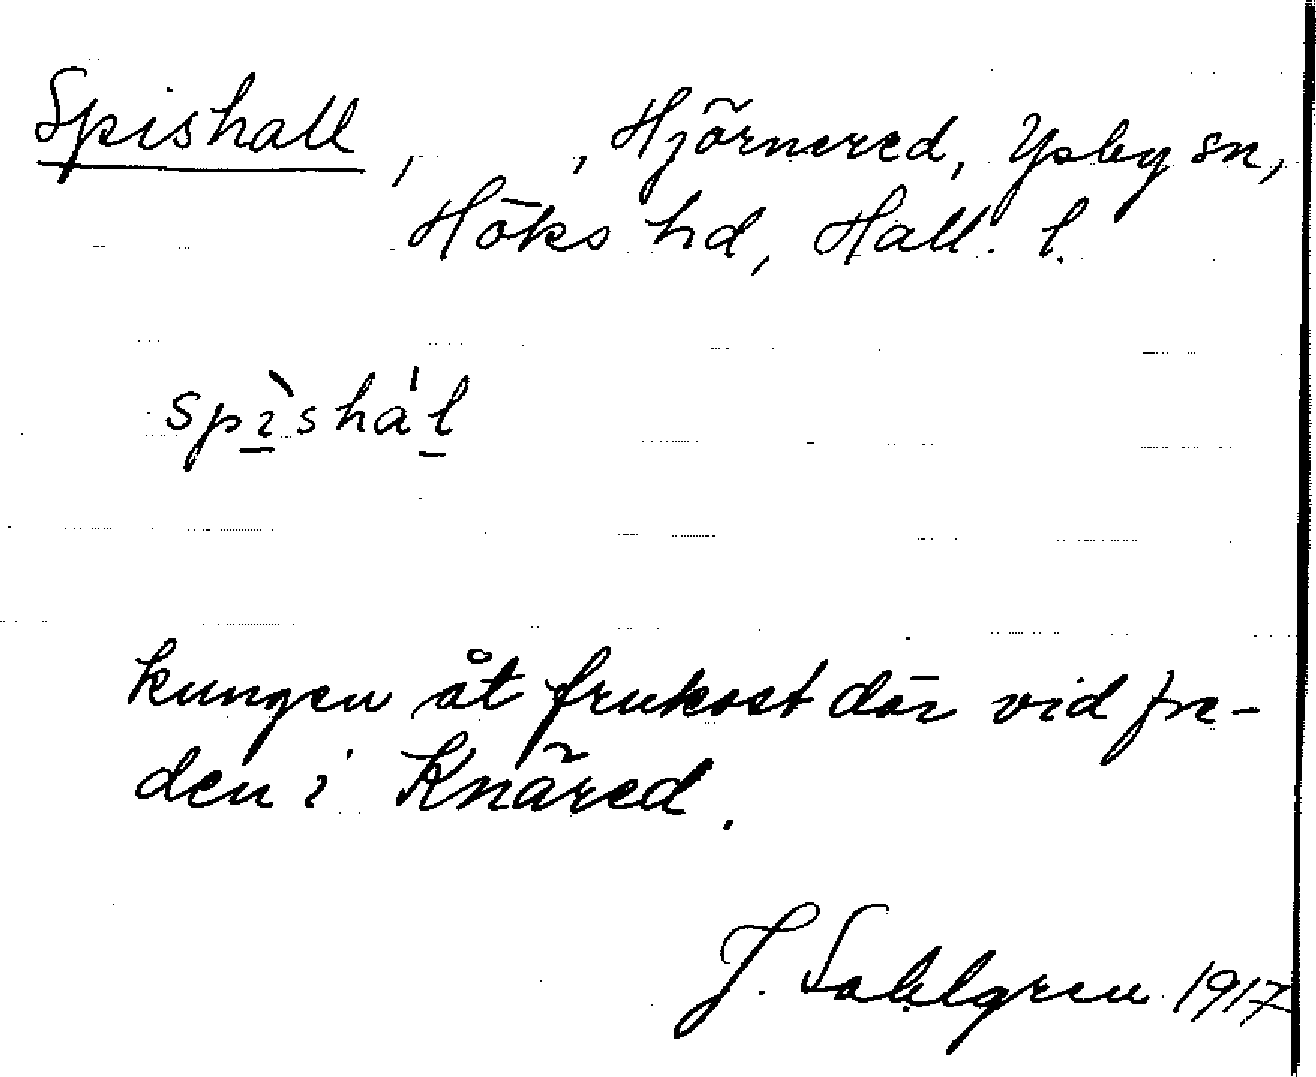 Spishall, , Hjörnered, Ysby sn,
Höks hd, Hall. l.
spì̲shá'l̲
kungen åt frukost där vid fre-
den i Knäred.
J. Sahlgren 1917